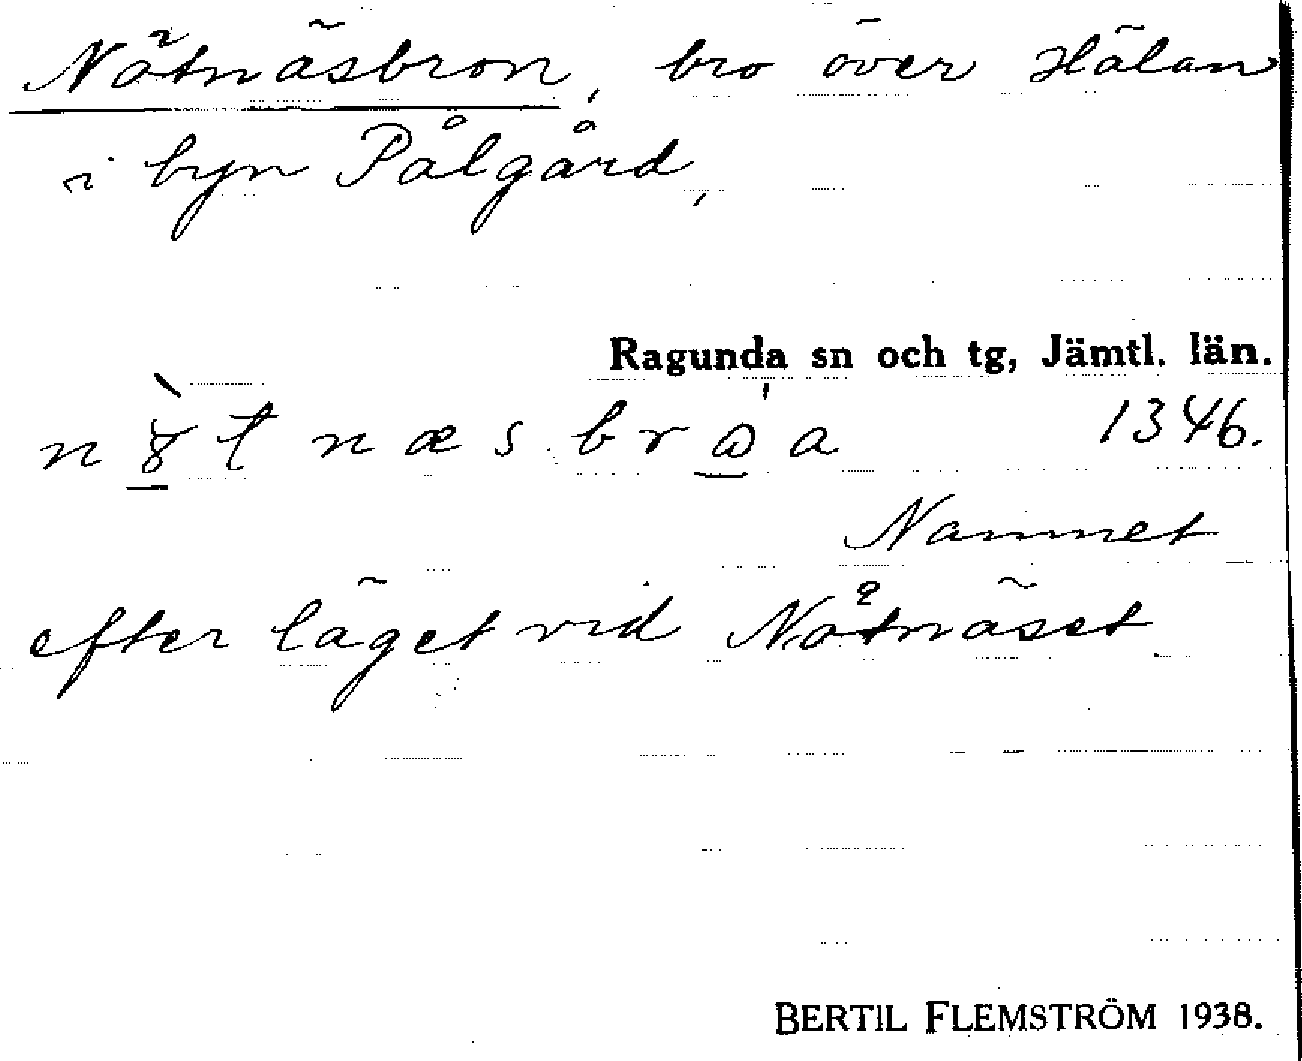 Nåtnäsbron, bro över Hälan
i byn Pålgård,
Ragunda sn och tg, Jämtl. län.
1346.
Namnet
efter läget vid Nåtnäset
BERTIL FLEMSTRÖM 1938.